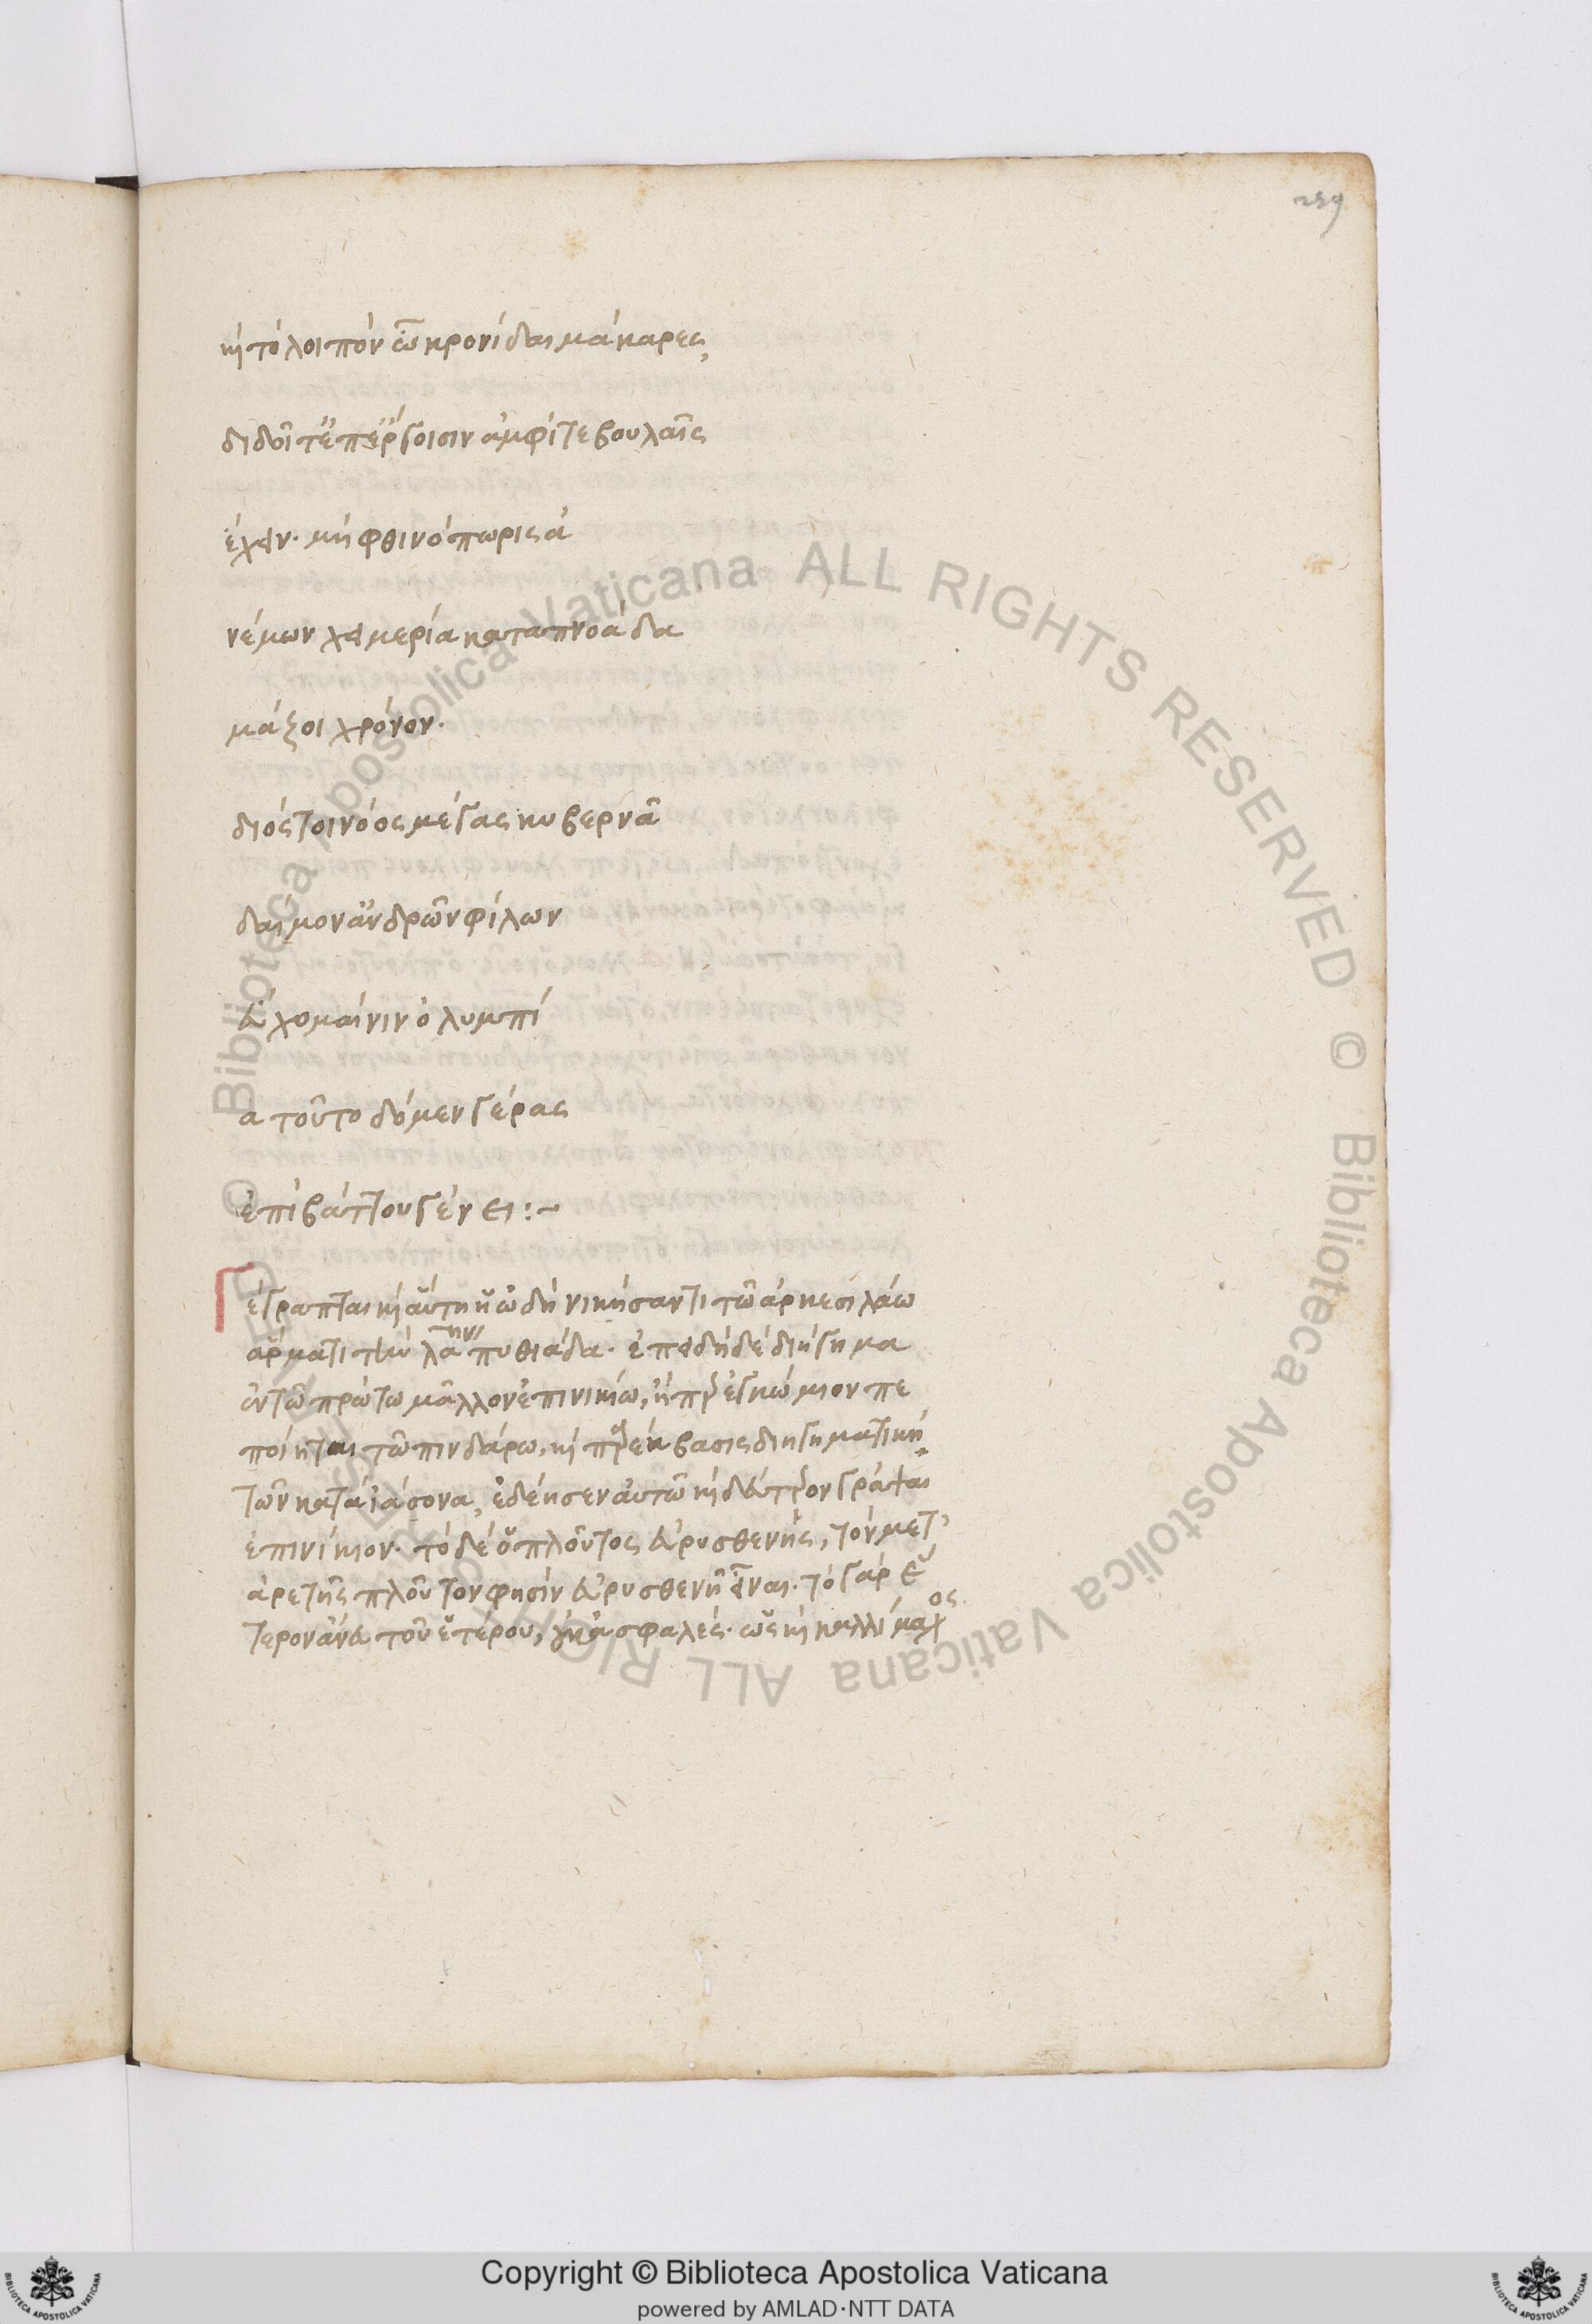 259
κ(αὶ) τὸ λοιπὸν ὦ κρονίδαι μάκαρες,
διδοῖτ' ἐπ' ἔργοισιν ἀμφί τε βουλαῖς
ἔχειν· μὴ φθινόπωρις ἀ
νέμων χειμερία καταπνοὰ δα
μάξοι χρόνον·
διός τοι νόος μέγας κυβερνᾶ
δαίμον' ἀνδρῶν φίλων
εὔχομαί νιν ὀλυμπί
α τοῦτο δόμεν γέρας
ἐπὶ βάττου γένει :~
Γέγραπται κ(αὶ) αὕτη ἡ ὠδὴ νικήσαντι τῶ ἀρκεσιλάω
ἅρματι τὴν λα^(ην) πυθιάδα· ἐπειδὴ δὲ διήγημα
ἐν τῶ πρώτω μᾶλλον ἐπινικίω, ἤπερ ἐγκώμιον πε
ποίηται τῶ πινδάρω, κ(αὶ) παρέκβασις διηγηματικὴ
τῶν κατὰ ἰάσονα, ἐδέησεν αὐτῶ κ(αὶ) δεύτερον γράψαι
ἐπινίκιον· τὸ δὲ ὁ πλοῦτος εὐρυσθενής, τὸν μετ'
ἀρετῆς πλοῦτον φησὶν εὐρυσθενῆ εἶναι· τὸ γὰρ ἕ
τερον ἄνευ τοῦ ἑτέρου, οὐκ ἀσφαλές· ὡς κ(αὶ) καλλίμαχος
Copyright © Biblioteca Apostolica Vaticana
powered by AMLAD·NTT DATA
© Biblioteca Apostolica Vaticana ALL RIGHTS RESERVED © Biblioteca Apostolica Vaticana ALL RIGHTS RESERVED
BIBLIOTECA APOSTOLICA VATICANA
BIBLIOTECA APOSTOLICA VATICANA